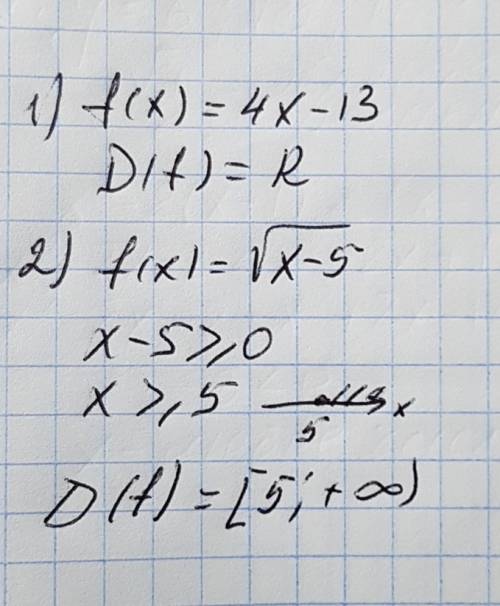 1) f(x) = 4x - 13
D(f) = R
2) f(x) = √x-5
x - 5 ⩾ 0
x ⩾ 5 5 x
D(f) = [5; + ∞)